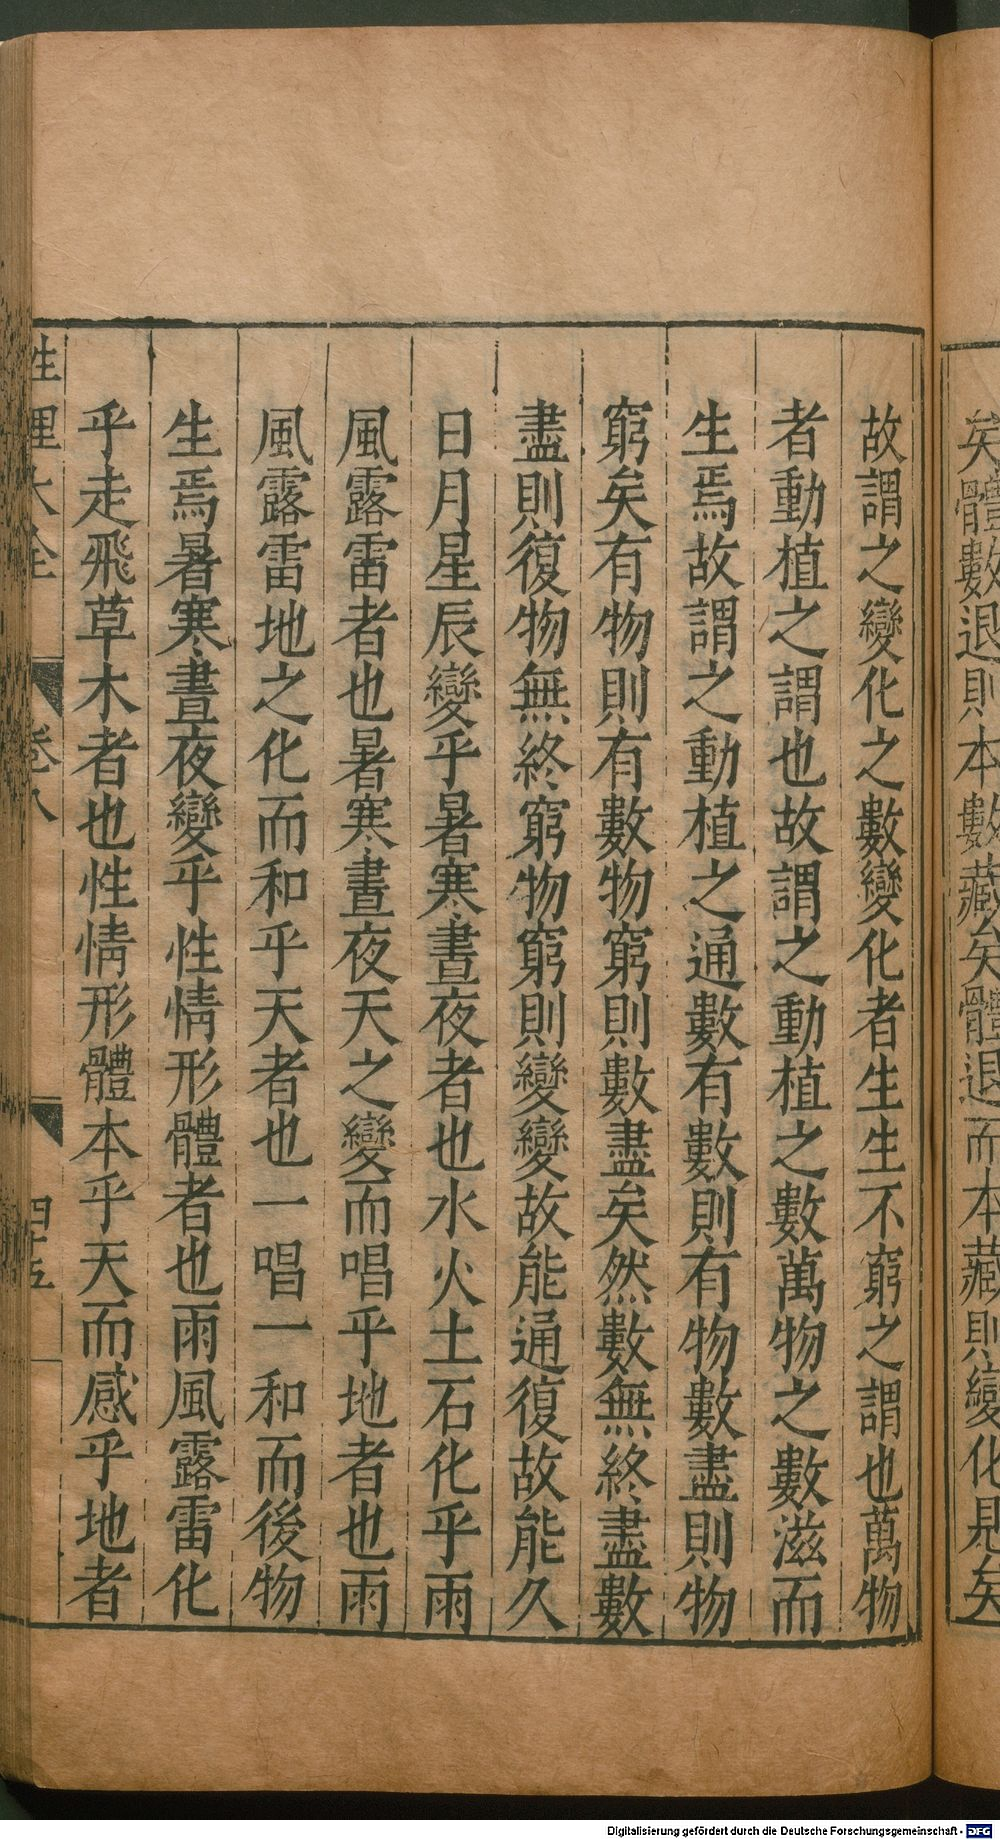 矣體數退則本數藏矣體退而本藏則變化見矣
故謂之變化之數變化者生生不窮之謂也萬物
者動植之謂也故謂之動植之數萬物之數滋而
生焉故謂之動植之通數有數則有物數盡則物
窮矣有物則有數物窮則數盡矣然數無終盡數
盡則復物無終窮物窮則變變故能通復故能久
日月星辰變乎暑寒晝夜者也水火土石化乎雨
風露雷者也暑寒晝夜天之變而唱乎地者也雨
風露雷地之化而和乎天者也一唱一和而後物
生焉暑寒晝夜變乎性情形體者也雨風露雷化
乎走飛草木者也性情形體本乎天而感乎地者
性理大全 卷八 四十五
Digitalisierung gefördert durch die Deutsche Forschungsgemeinschaft - DFG